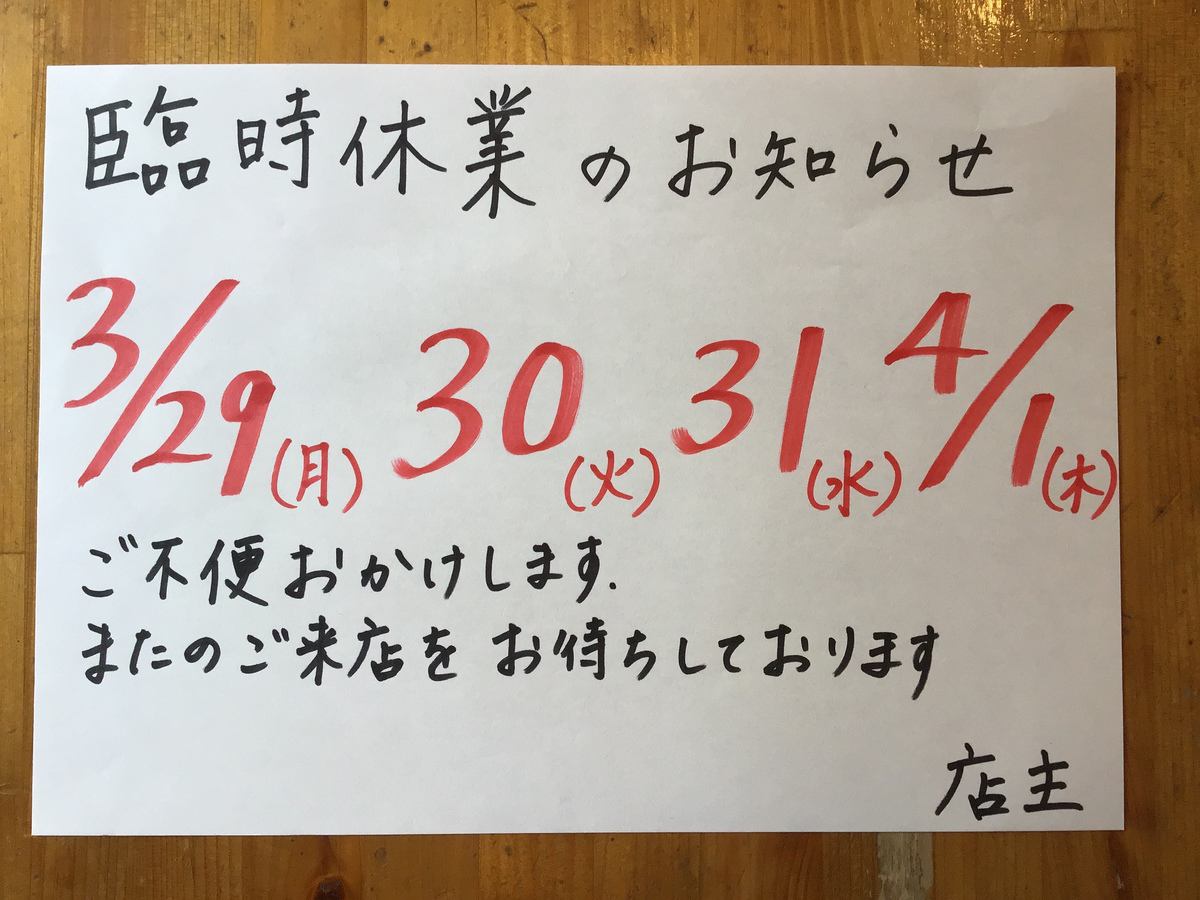 臨時休業のお知らせ
3/29(月) 30(火) 31(水) 4/1(木)
ご不便おかけします.
またのご来店を お待ちしております
店主